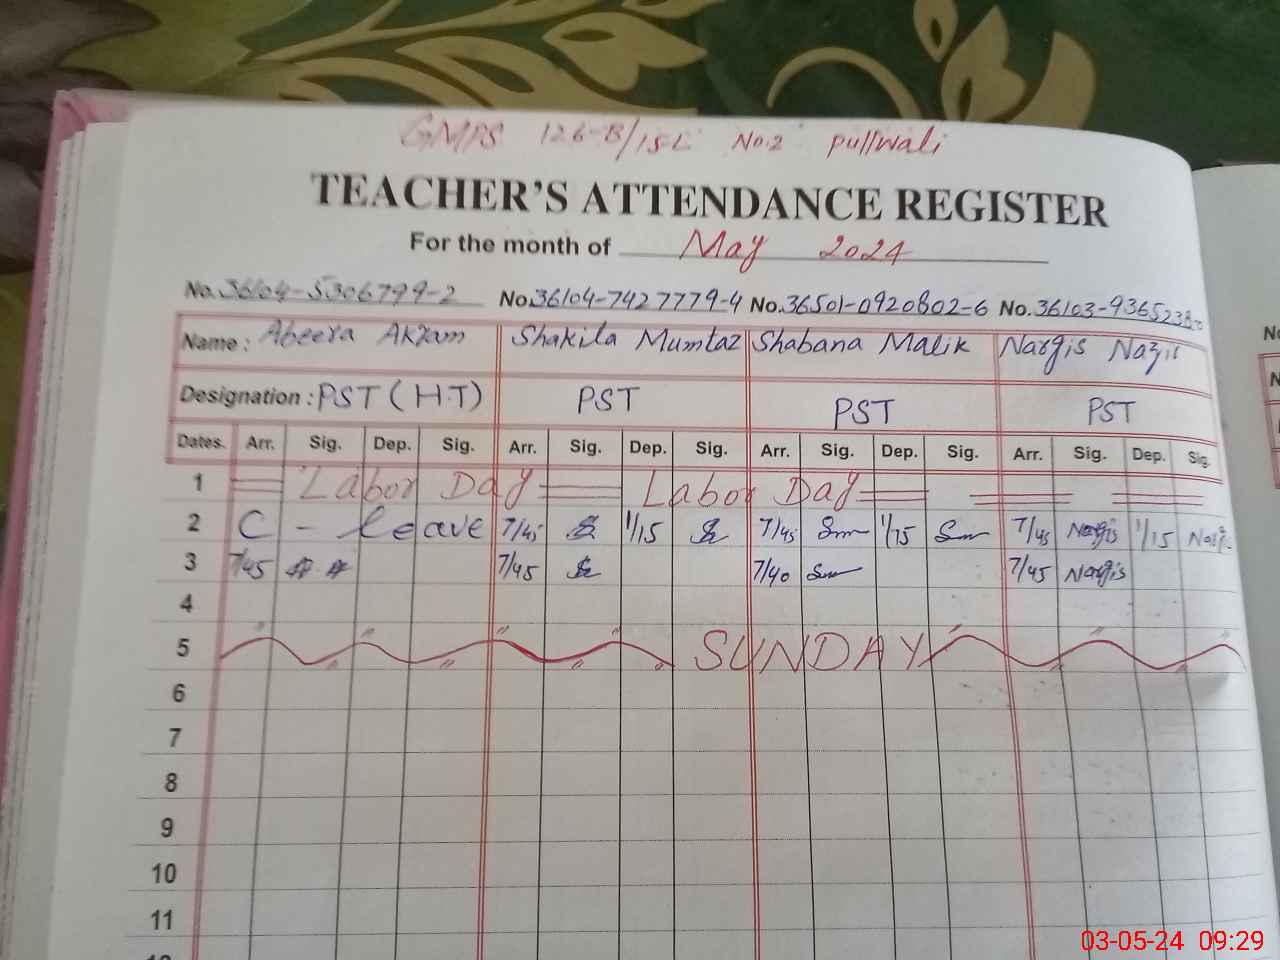 GMPS 126-B/15-L No.2 pullwali
TEACHER'S ATTENDANCE REGISTER
For the month of May 2024
No. 36104-5306799-2 No. 36104-7427779-4 No. 36501-0920802-6 No. 36103-936523
Name : Abeera Akram Shakila Mumtaz Shabana Malik Nargis Nazir
Designation : PST (H.T) PST PST PST
Dates. Arr. Sig. Dep. Sig. Arr. Sig. Dep. Sig. Arr. Sig. Dep. Sig. Arr. Sig. Dep. Sig.
1 Labor Day Labor Day
2 C - leave 7/45 1/15 7/45 1/15 7/45 Nargis 1/15
3 7/45 7/45 7/40 7/45 Nargis
4
5 SUNDAY
6
7
8
9
10
11
03-05-24 09:29